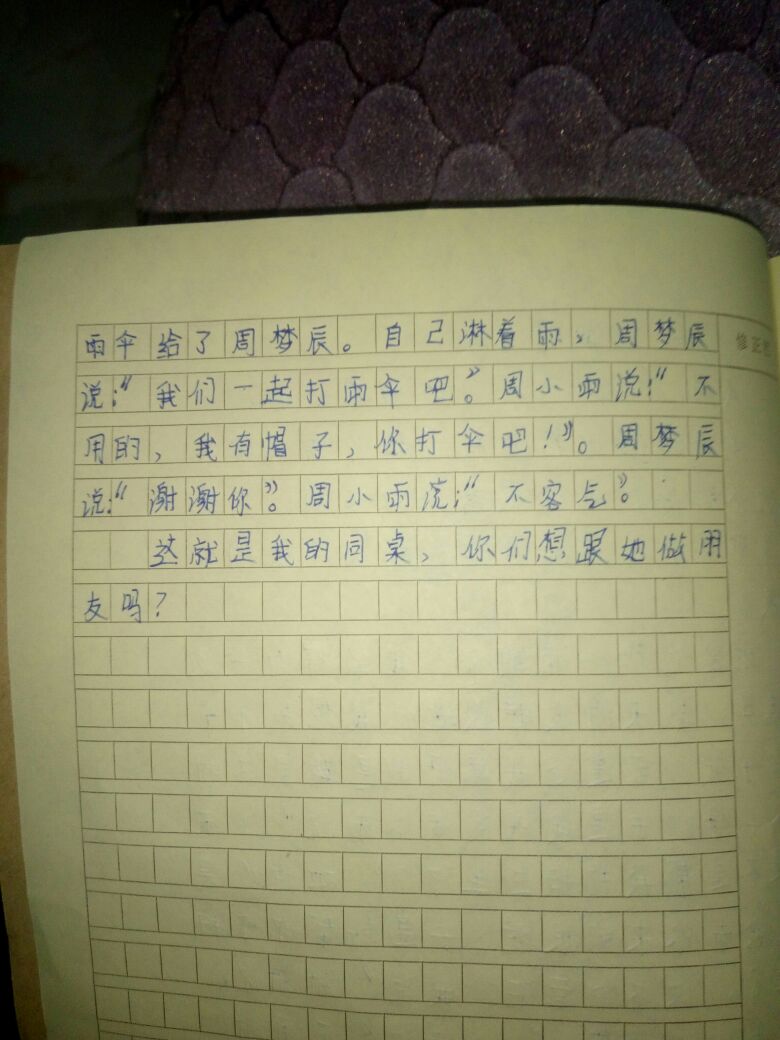 雨伞给了周梦辰。自己淋着雨，周梦辰
说：“我们一起打雨伞吧。”周小雨说：“不
用的，我有帽子，你打伞吧！”。周梦辰
说：“谢谢你”。周小雨说：“不客气”。
这就是我的同桌，你们想跟她做朋
友吗？
修正栏